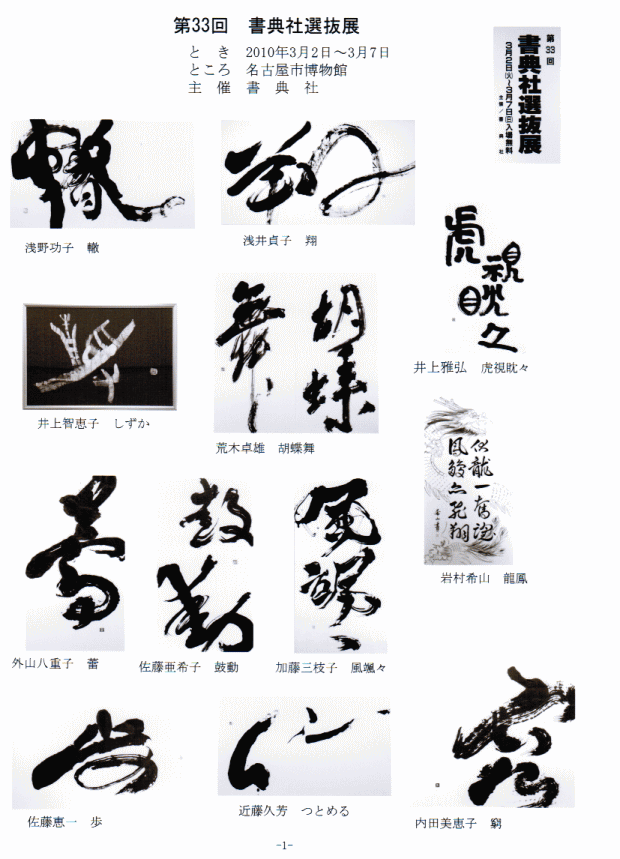 第33回 書典社選抜展
と き 2010年3月2日～3月7日
ところ 名古屋市博物館
主 催 書 典 社
第33回
書典社選抜展
3月2日(火)～3月7日(日)入場無料
主催／書典社
浅野功子 轍
浅井貞子 翔
虎視
眈々
井上雅弘 虎視眈々
井上智恵子 しずか
胡蝶
舞
荒木卓雄 胡蝶舞
岩村希山 龍鳳
蕾
外山八重子 蕾
鼓動
佐藤亜希子 鼓動
風颯々
加藤三枝子 風颯々
佐藤恵一 歩
近藤久芳 つとめる
内田美恵子 窮
-1-